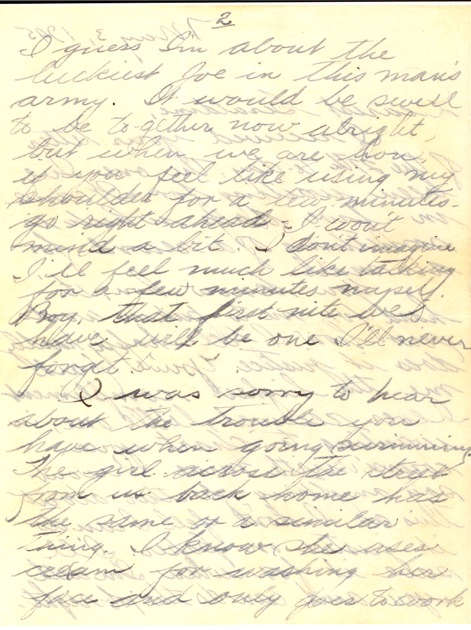 2
I guess I'm about the
luckiest Joe in this man's
army. It would be swell
to be to-gether now alright,
but when we are hon,
if you feel like using my
shoulder for a few minutes -
go right ahead - I won't
mind a bit. I dont imagine
I'll feel much like talking
for a few minutes myself.
Boy, that first nite we
have will be one I'll never
forget.
I was sorry to hear
about the trouble you
have when going swimming.
The girl across the street
from us back home has
the same or a similar
thing. I know she uses
cream for washing her
face and only goes to work